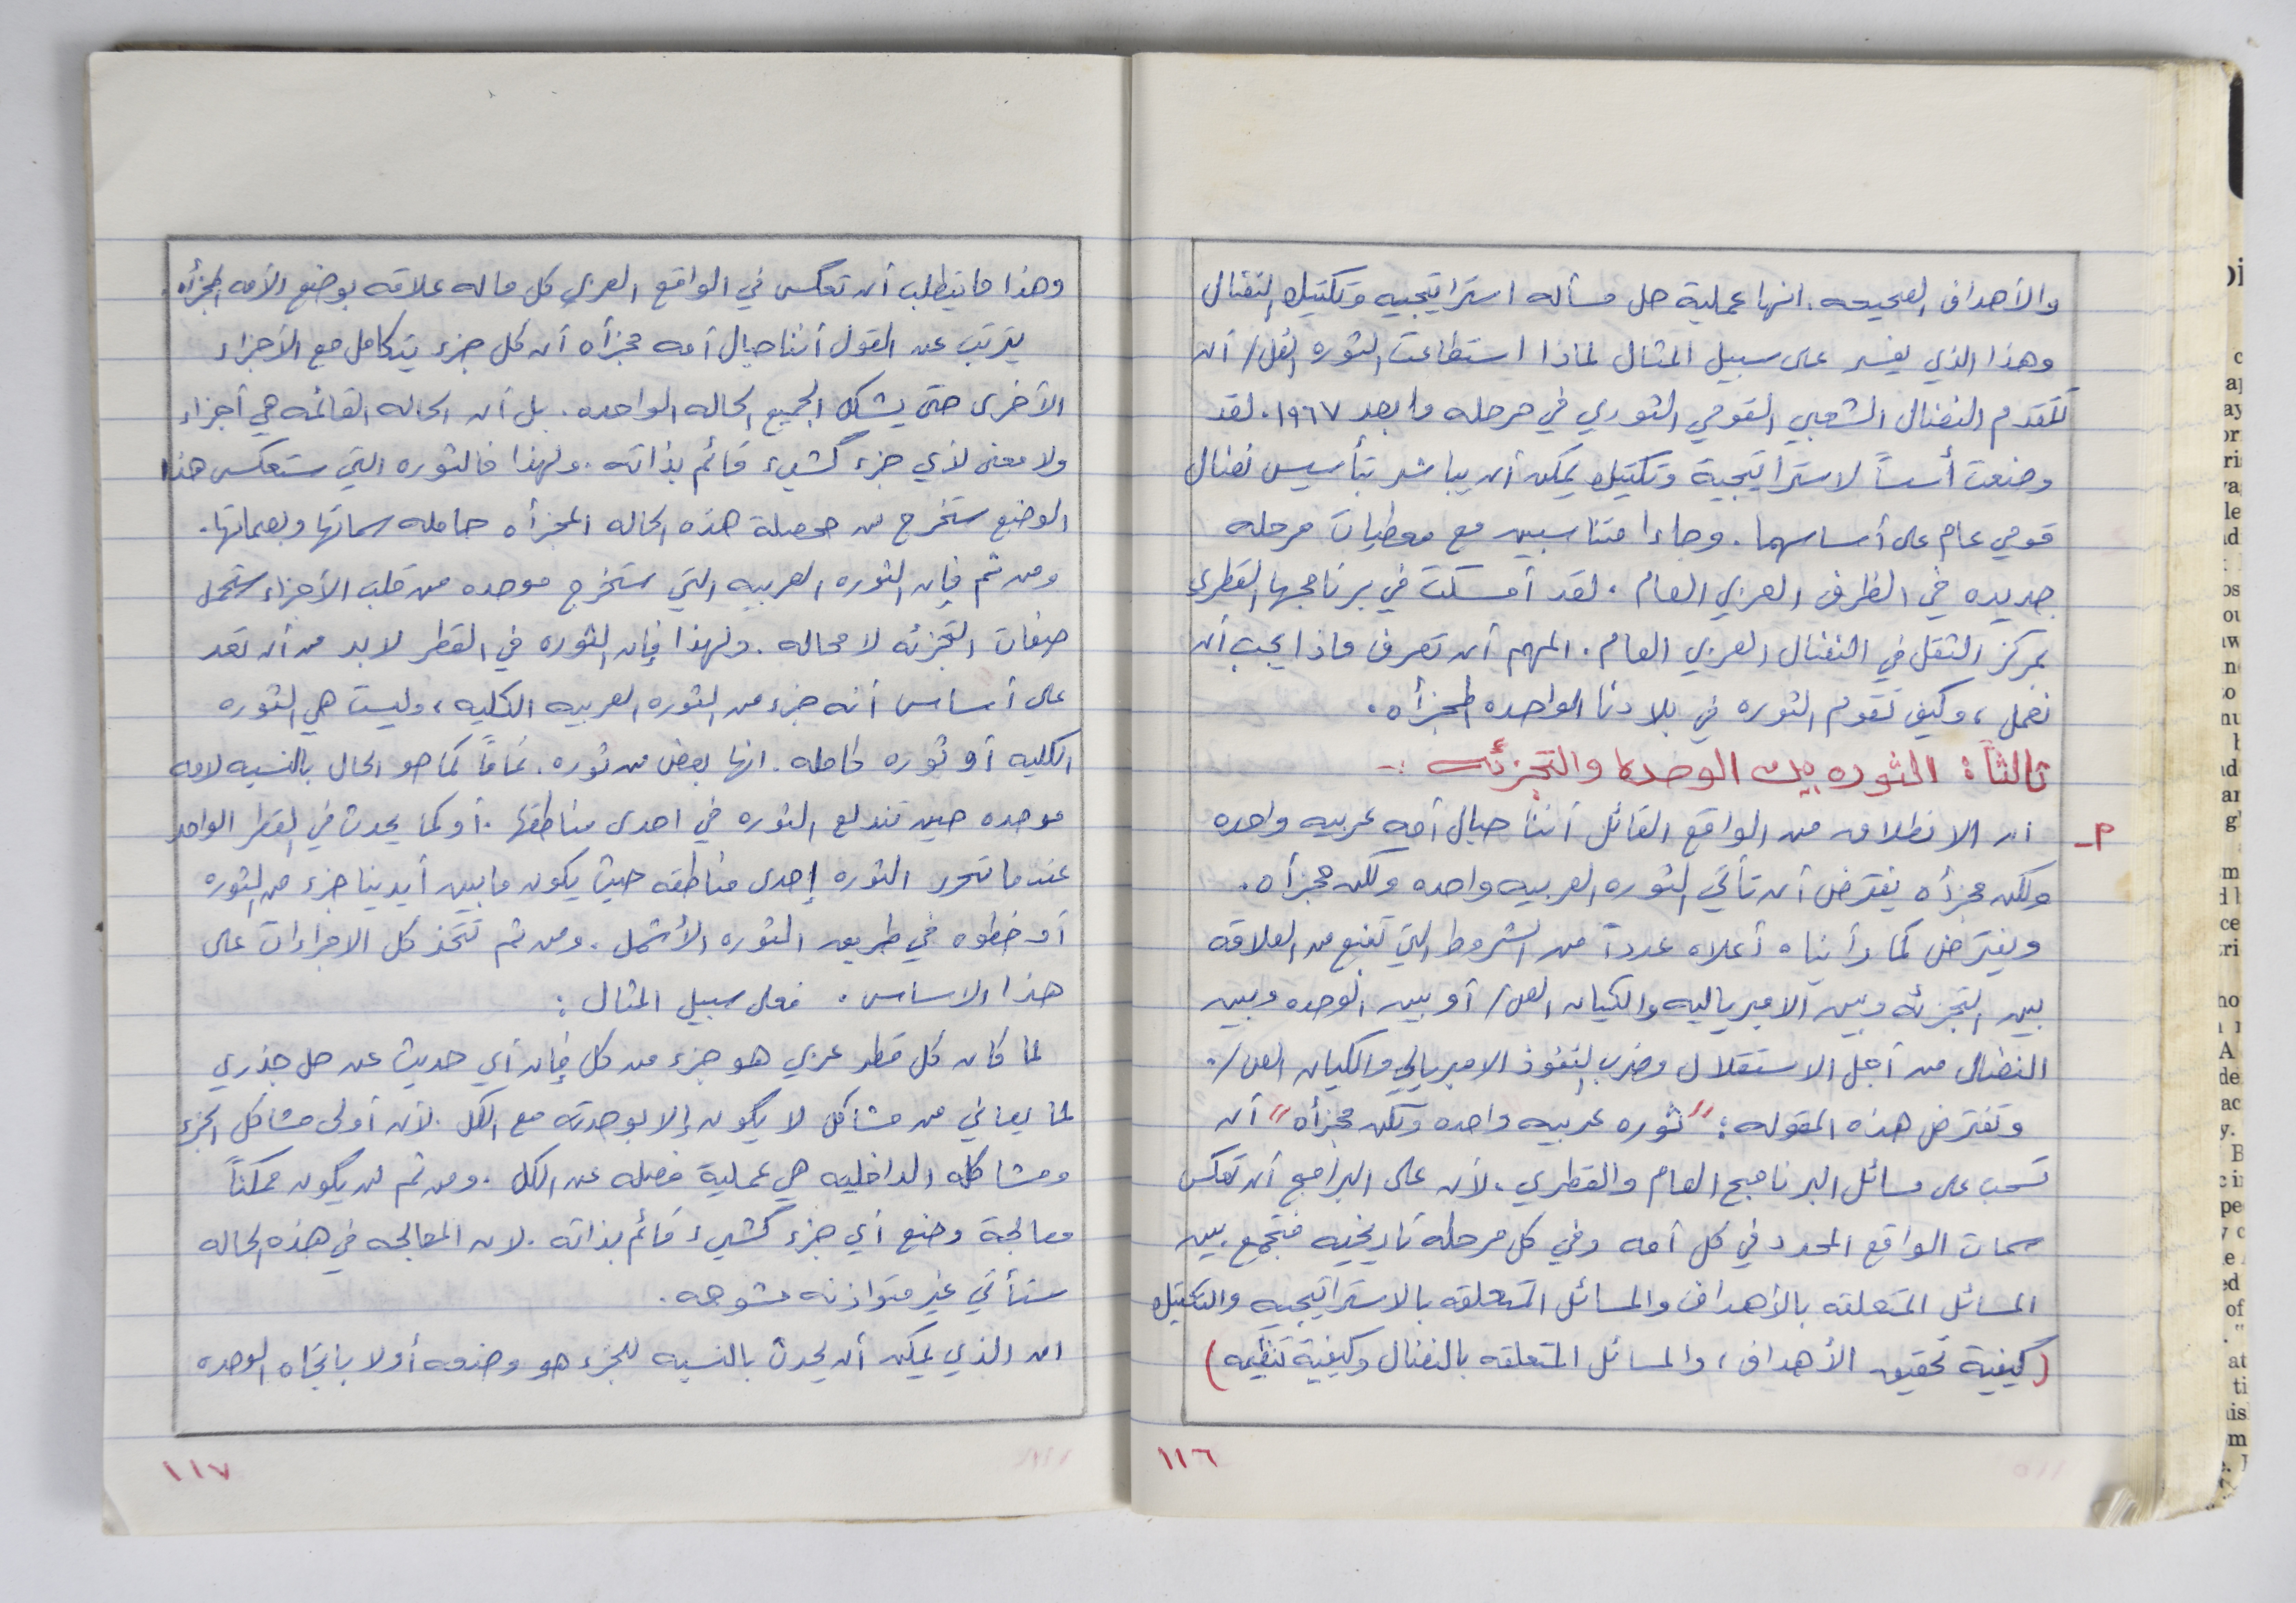 والأهداف الصحيحه. انها عملية حل مسأله استراتيجيه وتكتيك النضال
وهذا الذي يفسر على سبيل المثال لماذا استطاعت الثوره الفل/ أن
تتقدم النضال الشعبي القومي الثوري في مرحله ما بعد ١٩٦٧. لقد
وضعت أسساً لاستراتيجية وتكتيك يمكن أن يباشر بتأسيس نضال
قومي عام على أساسهما. وجاءا متناسبين مع معطيات مرحله
جديده في الظرف العربي العام. لقد أمسكت في برنامجها القطري
بمركز الثقل في النضال العربي العام. المهم أن نعرف ماذا يجب أن
نعمل، وكيف تقوم الثوره في بلادنا الواحده المجزأه.
ثالثاً: الثوره بين الوحده والتجزئه :-
م-
ان الانطلاق من الواقع القائل أننا حيال أمه عربيه واحده
ولكن مجزأه يفترض أن تأتي الثوره العربيه واحده ولكن مجزأه.
ويفترض كما رأيناه أعلاه عدداً من الشروط التي تنبع من العلاقه
بين التجزئه وبين الامبرياليه والكيان الص/ أو بين الوحده وبين
النضال من أجل الاستقلال وضرب النفوذ الامبريالي والكيان الص/.
وتفترض هذه المقوله: "ثوره عربيه واحده ولكن مجزأه" أن
تسحب على مسائل البرنامج العام والقطري. لأن على البرامج أن تعكس
سمات الواقع المحدد في كل أمه وفي كل مرحله تاريخيه فتجمع بين
المسائل المتعلقه بالأهداف والمسائل المتعلقه بالاستراتيجيه والتكتيك
(كيفية تحقيق الأهداف، والمسائل المتعلقه بالنضال وكيفية تنظيمه)
١١٦
وهذا ما يتطلب أن تعكس في الواقع العربي كل ما له علاقه بوضع الأمه المجزأه.
يترتب عن القول أننا حيال أمه مجزأه أن كل جزء يتكامل مع الأجزاء
الأخرى حتى يشكل الجميع الحاله الواحده. بل أن الحاله القائمه هي أجزاء
ولا معنى لأي جزء كشيء قائم بذاته. ولهذا فالثوره التي ستعكس هذا
الوضع ستخرج من محصلة هذه الحاله المجزأه حامله سماتها وبصماتها.
ومن ثم فإن الثوره العربيه التي ستخرج موحده من قلب الأجزاء ستحمل
صفات التجزئه لا محاله. ولهذا فإن الثوره في القطر لا بد من أن تعد
على أساس أنه جزء من الثوره العربيه الكليه، وليست هي الثوره
الكليه أو ثوره كامله. انها بعض من ثوره. تماماً كما هو الحال بالنسبه لامه
موحده حين تندلع الثوره في احدى مناطقها. أو كما يحدث في القطر الواحد
عندما تحرر الثوره إحدى مناطقه حيث يكون ما بين أيدينا جزء من الثوره
أو خطوه في طريق الثوره الأشمل. ومن ثم تتخذ كل الاجراءات على
هذا الاساس. فعلى سبيل المثال:
لما كان كل قطر عربي هو جزء من كل فإن أي حديث عن حل جذري
لما يعاني من مشاكل لا يكون إلا بوحدته مع الكل. لأن أولى مشاكل الجزء
ومشاكله الداخليه هي عملية فصله عن الكل. ومن ثم لن يكون ممكناً
معالجة وضع أي جزء كشيء قائم بذاته. لان المعالجه في هذه الحاله
ستأتي غير متوازنه مشوهه.
ان الذي يمكن أن يحدث بالنسبه للجزء هو وضعه أولا باتجاه الوحده
١١٧